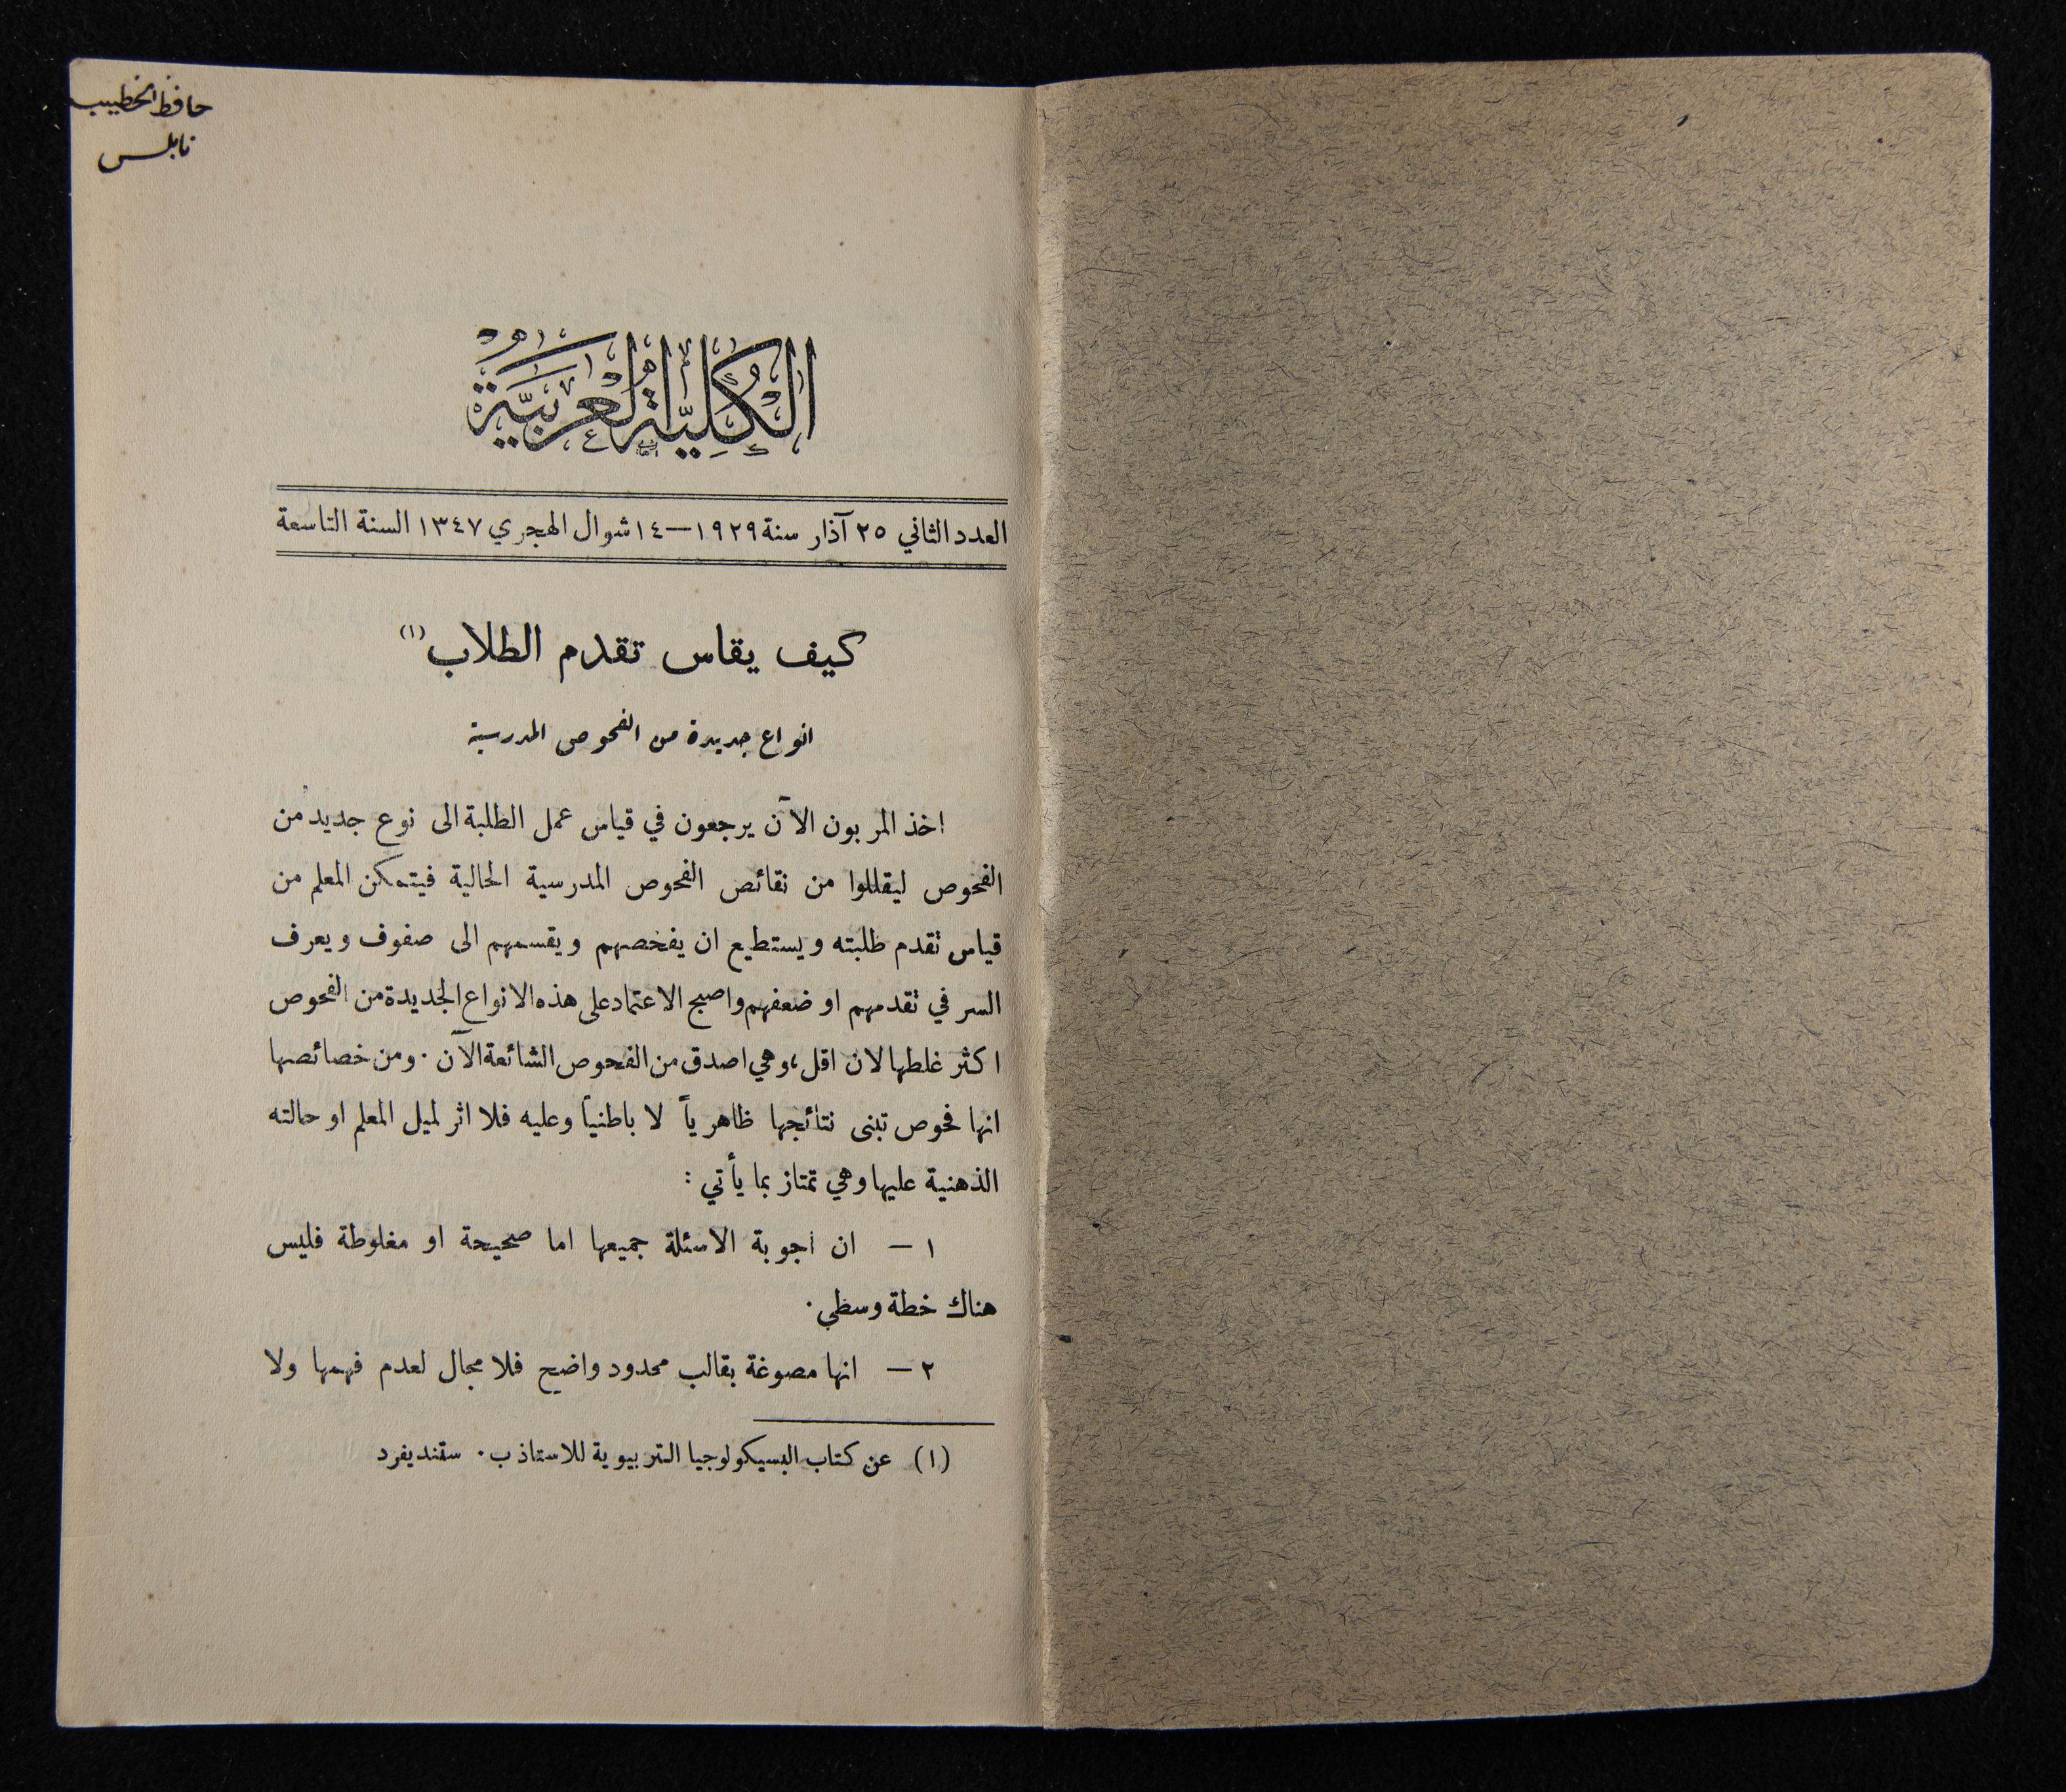 حافظ الخطيب
نابلس
الكُلِيَّة العَرَبِيَّة
العدد الثاني ٢٥ آذار سنة ١٩٢٩ — ١٤ شوال الهجري ١٣٤٧ السنة التاسعة
كيف يقاس تقدم الطلاب (١)
انواع جديدة من الفحوص المدرسية
اخذ المربون الآن يرجعون في قياس عمل الطلبة الى نوع جديد من
الفحوص ليقللوا من نقائص الفحوص المدرسية الحالية فيتمكن المعلم من
قياس تقدم طلبته ويستطيع ان يفحصهم ويقسمهم الى صفوف ويعرف
السر في تقدمهم او ضعفهم واصبح الاعتماد على هذه الانواع الجديدة من الفحوص
اكثر غلطها لان اقل، وهي اصدق من الفحوص الشائعة الآن . ومن خصائصها
انها فحوص تبنى نتائجها ظاهرياً لا باطنياً وعليه فلا اثر لميل المعلم او حالته
الذهنية عليها وهي تمتاز بما يأتي :
١ — ان اجوبة الاسئلة جميعها اما صحيحة او مغلوطة فليس
هناك خطة وسطى .
٢ — انها مصوغة بقالب محدود واضح فلا مجال لعدم فهمها ولا
(١) عن كتاب البسيكولوجيا التربيوية للاستاذ ب . ستنديفرد